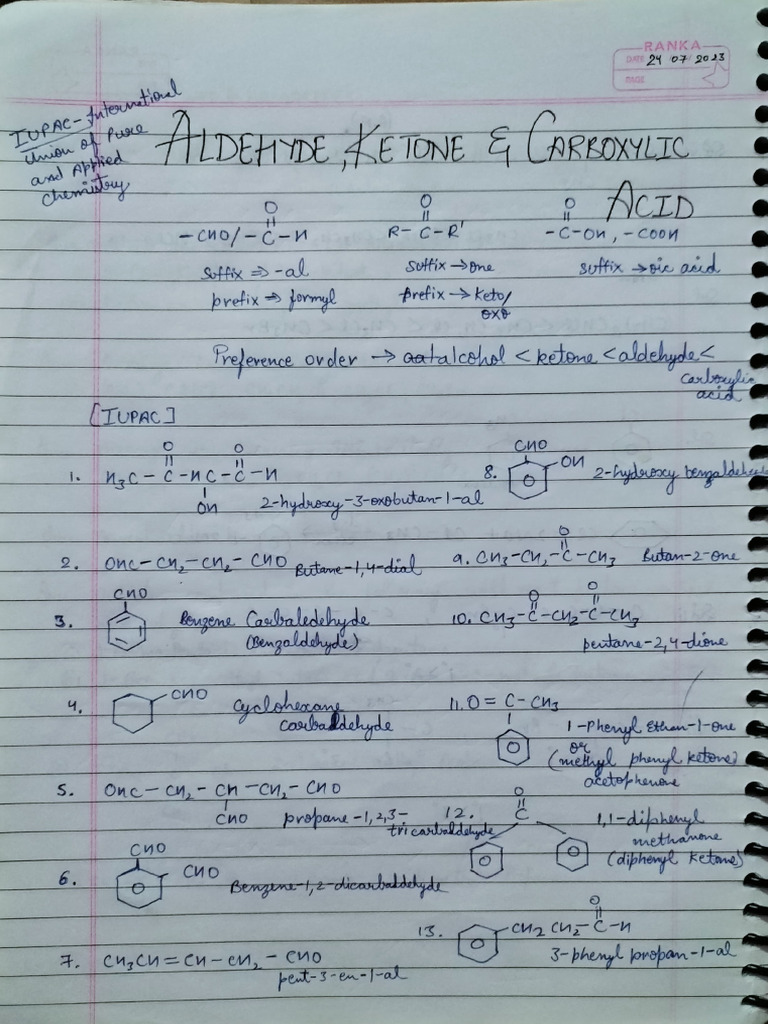 RANKA
DATE 24 07 2023
PAGE
IUPAC - International
Union of Pure
and Applied
Chemistry
ALDEHYDE, KETONE & CARBOXYLIC
ACID
-CHO/ -C-H
O
R-C-R'
O
-C-OH, -COOH
O
suffix ⇒ -al
suffix → one
suffix → oic acid
prefix ⇒ formyl
prefix → keto/
oxo
Preference order → alcohol < ketone < aldehyde <
carboxylic
acid
[IUPAC]
1. H3C - C - HC - C - H
O O
OH
2-hydroxy-3-oxobutan-1-al
2. OHC - CH2 - CH2 - CHO Butane-1,4-dial
3. CHO
Benzene Carbaledehyde
(Benzaldehyde)
4. CHO
Cyclohexane
carbaldehyde
5. OHC - CH2 - CH - CH2 - CHO
CHO
propane-1,2,3-
tricarbaldehyde
6. CHO
CHO
Benzene-1,2-dicarbaldehyde
7. CH3CH = CH - CH2 - CHO
pent-3-en-1-al
8. CHO
OH
2-hydroxy benzaldehyde
9. CH3 - CH2 - C - CH3
O
Butan-2-one
10. CH3 - C - CH2 - C - CH3
O O
pentane-2,4-dione
11. O = C - CH3
1-Phenyl Ethan-1-one
or
(methyl phenyl ketone)
acetophenone
12. O
C
1,1-diphenyl
methanone
(diphenyl ketone)
13. CH2 CH2 - C - H
O
3-phenyl propan-1-al